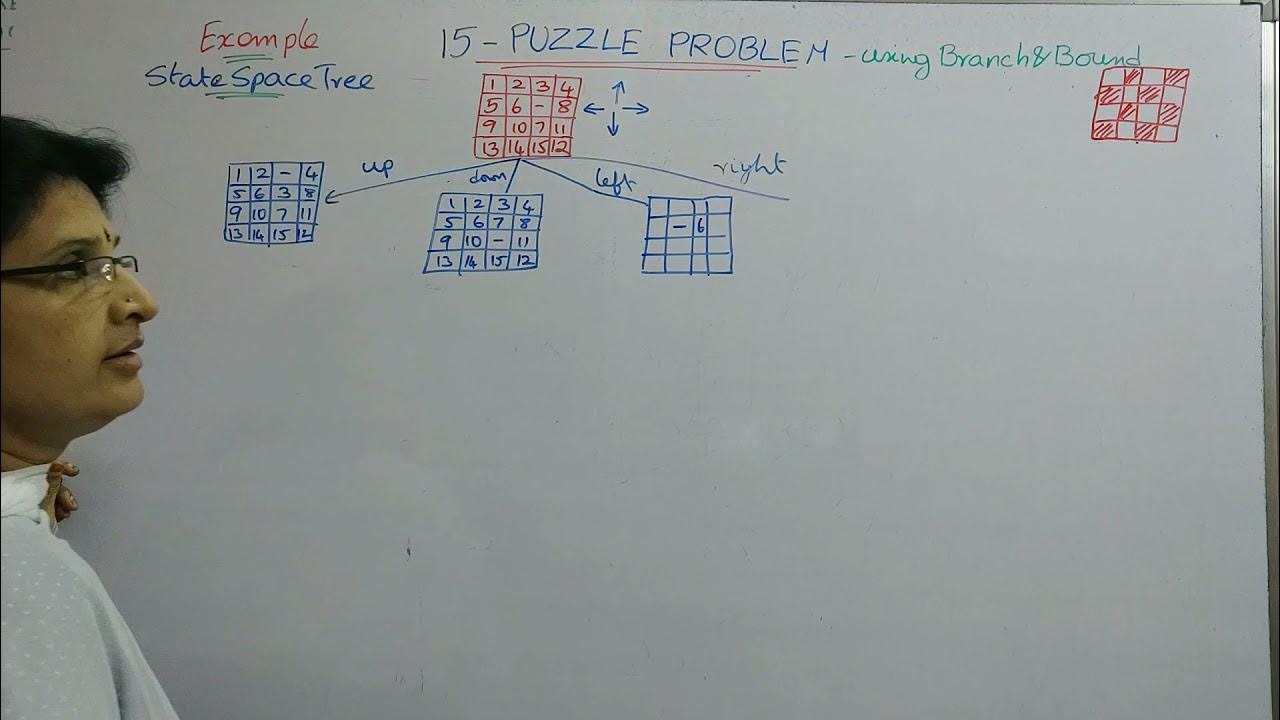 Example
State Space Tree
15 - PUZZLE PROBLEM - using Branch & Bound
1 2 3 4
5 6 - 8
9 10 7 11
13 14 15 12
up
down
left
right
1 2 - 4
5 6 3 8
9 10 7 11
13 14 15 12
1 2 3 4
5 6 7 8
9 10 - 11
13 14 15 12
- 6